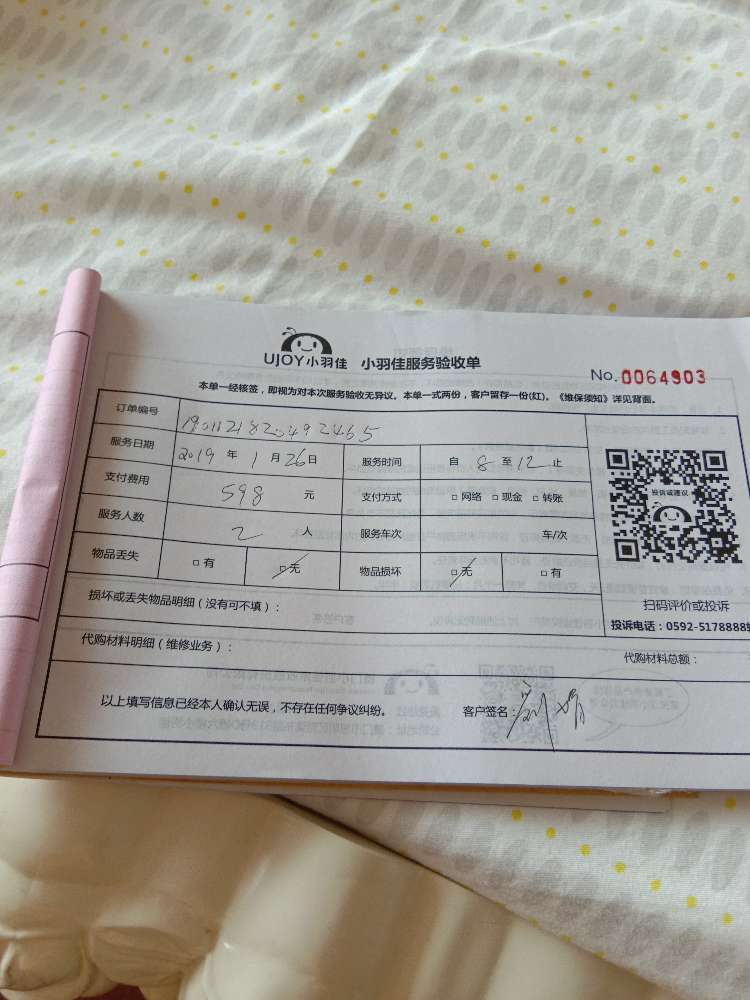 UJOY小羽佳 小羽佳服务验收单
No. 0064903
本单一经核签，即视为对本次服务验收无异议。本单一式两份，客户留存一份(红)。《维保须知》详见背面。
订单编号 1901121820492465
服务日期 2019 年 1 月 26 日 服务时间 自 8 至 12 止
支付费用 598 元 支付方式 □ 网络 □ 现金 □ 转账
服务人数 2 人 服务车次 车/次
物品丢失 □ 有 □ 无 物品损坏 □ 无 □ 有
投诉或建议
扫码评价或投诉
投诉电话：0592-5178888
损坏或丢失物品明细（没有可不填）：
代购材料明细（维修业务）：
代购材料总额：
以上填写信息已经本人确认无误，不存在任何争议纠纷。 客户签名：